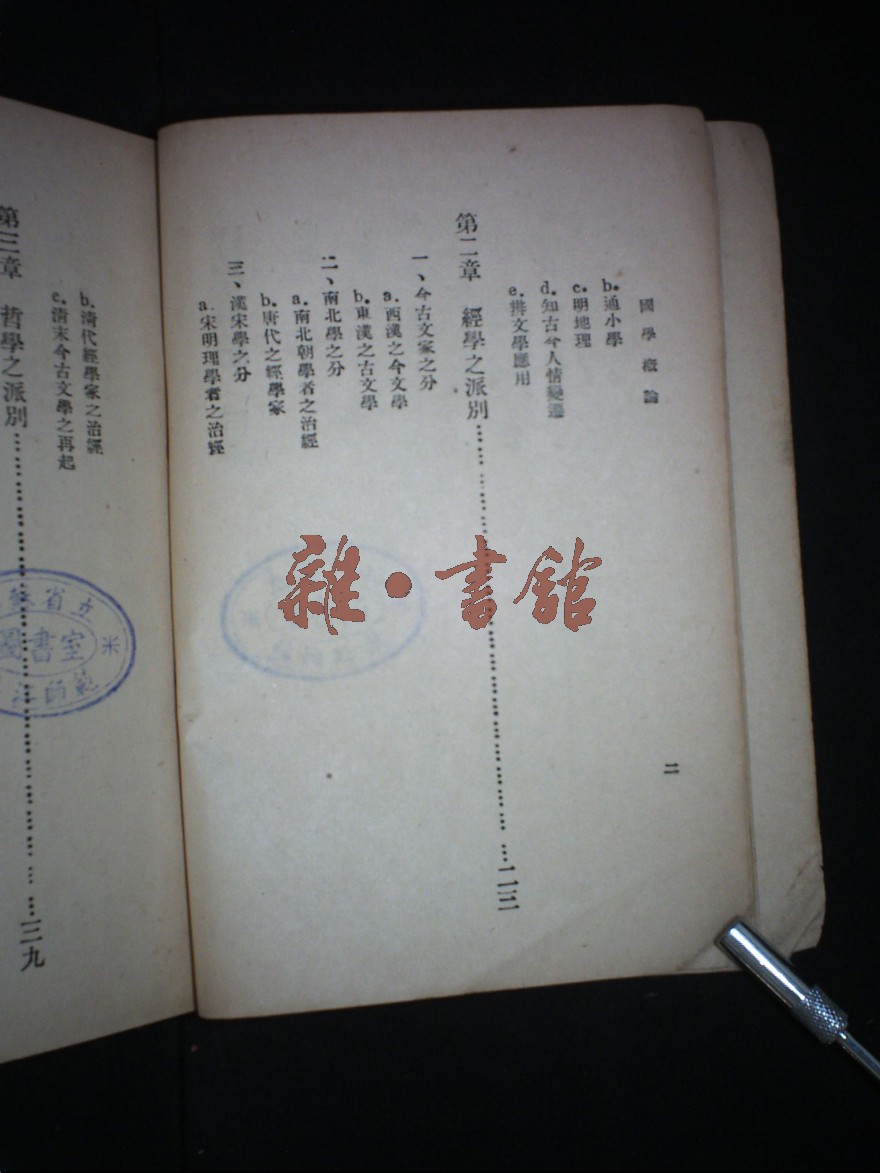 國學概論
二
b.通小學
c.明地理
d.知古今人情變遷
e.辨文學應用
第二章 經學之派別……………………二三
一、今古文家之分
a.西漢之今文學
b.東漢之古文學
二、南北學之分
a.南北朝學者之治經
b.唐代之經學家
三、漢宋學之分
a.宋明理學者之治經
b.清代經學家之治經
c.清末今古文學之再起
第三章 哲學之派別……………………三九
雜·書館
立省
圖書室
範師